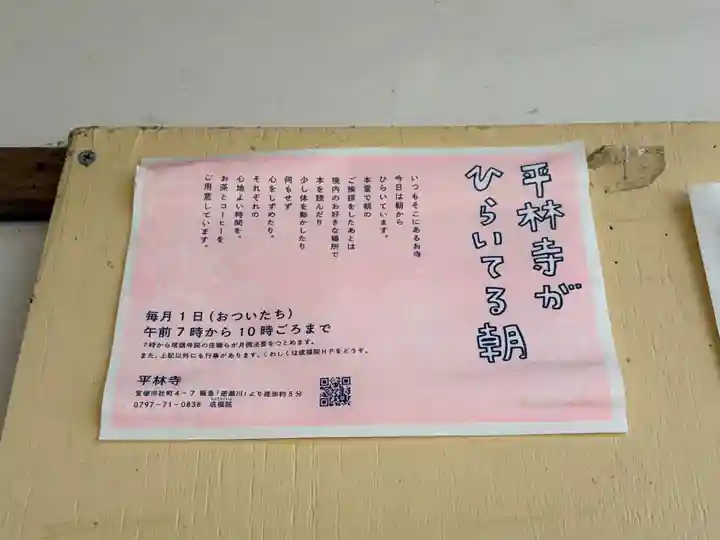 平林寺が
ひらいてる朝
いつもそこにあるお寺
今日は朝から
ひらいています。
本堂で朝の
ご挨拶をしたあとは
境内のお好きな場所で
本を読んだり
少し体を動かしたり
何もせず
心をしずめたり。
それぞれの
心地よい時間を。
お茶とコーヒーを
ご用意しています。
毎月1日(おついたち)
午前7時から10時ごろまで
7時から塔頭寺院の住職らが月例法要をつとめます。
また、上記以外にも行事があります。くわしくは成福院HPをどうぞ。
平林寺
宝塚市社町4-7 阪急「逆瀬川」より徒歩約5分
0797-71-0838 成福院